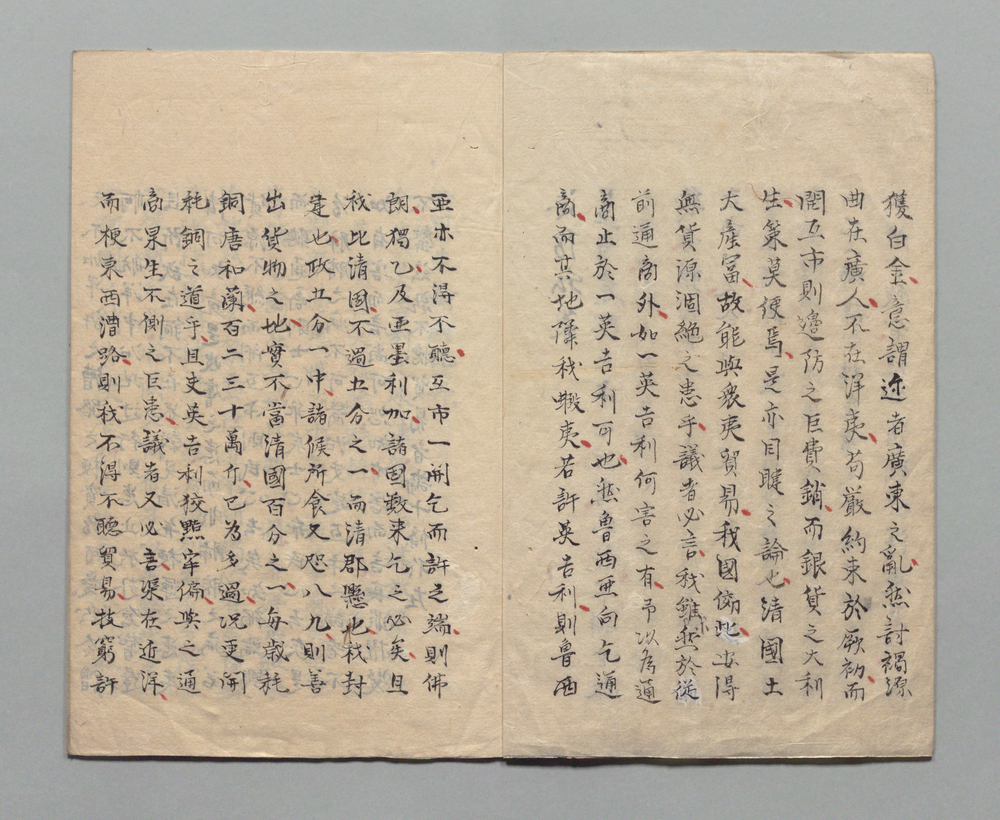 獲白金意謂近者廣東之亂愁討禍源
曲在廣人不在洋夷苟嚴約束於厥初而
開互市則邊防之巨費銷而銀貨之大利
生策莫便焉是亦目睫之論也清國土
大產冨故能與衆夷貿易我國徧地安得
無貨源涸絶之患乎議者必言我雖然於從
前通商外如一英吉利何害之有予以為通
商止於一英吉利可也然魯西亜向乞通
商而其地隣我蝦夷若許英吉利則魯西
亜亦不得不聽互市一開乞而許之端則佛
朗獨乙及亜墨利加諸國数来乞之必矣且
我比清國不過五分之一而清郡懸也我封
建也政五分一中諸候所食又咫八九則善
出貨物之地實不當清國百分之一毎歳耗
銅唐和蘭百二三十萬斤已為多過况更開
耗銅之道乎且夫英吉利狡黠牢偏與之通
商果生不測之巨患議者又必言渠在近洋
而梗東西漕路則我不得不聽貿易技窮許